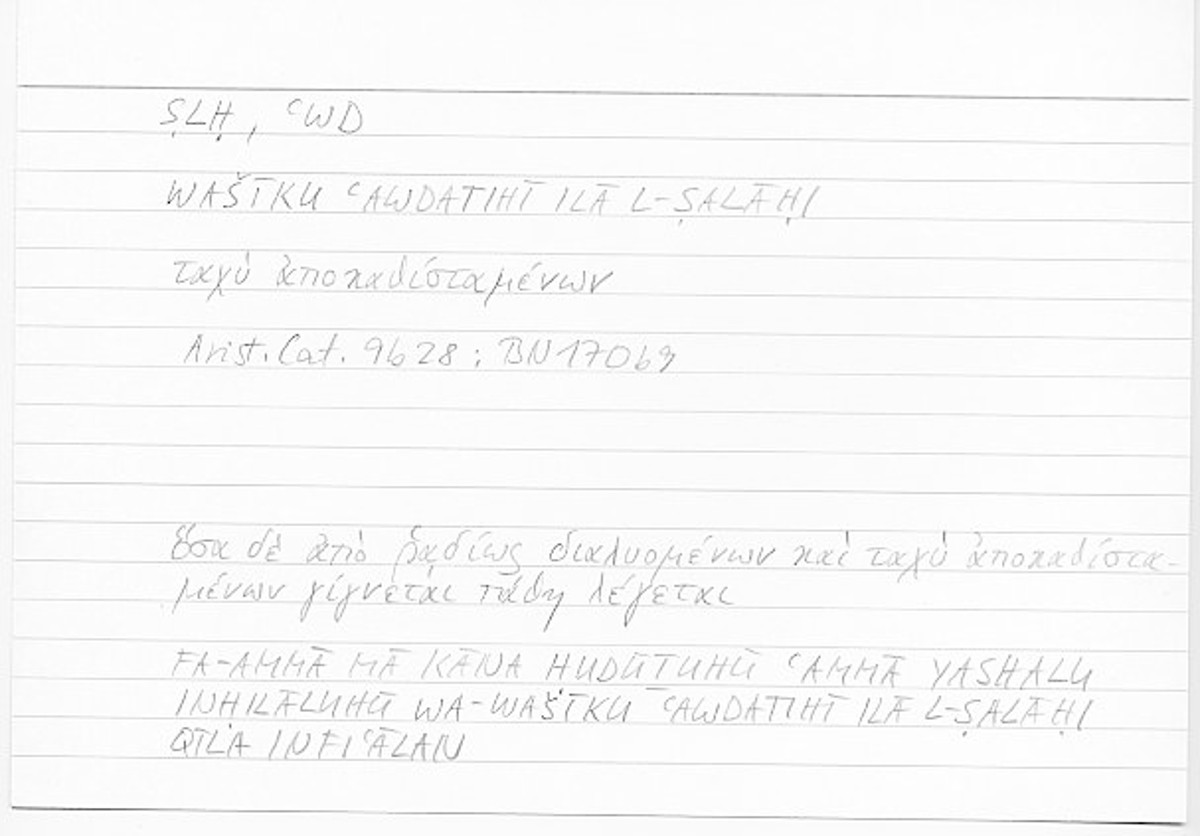 ṢLḤ, ʿWD
WAŠĪKU ʿAWDATIHĪ ILĀ L-ṢALĀḤI
ταχὺ ἀποκαθισταμένων
Arist. Cat. 9b28; BN 170b9
ὅσα δὲ ἀπὸ ῥᾳδίως διαλυομένων καὶ ταχὺ ἀποκαθιστα-
μένων γίγνεται πάθη λέγεται
FA-AMMĀ MĀ KĀNA HUDŪTUHŪ ʿAMMĀ YASHALU
INHILĀLUHŪ WA-WAŠĪKU ʿAWDATIHĪ ILĀ L-ṢALĀḤI
QĪLA INFIʿĀLAN